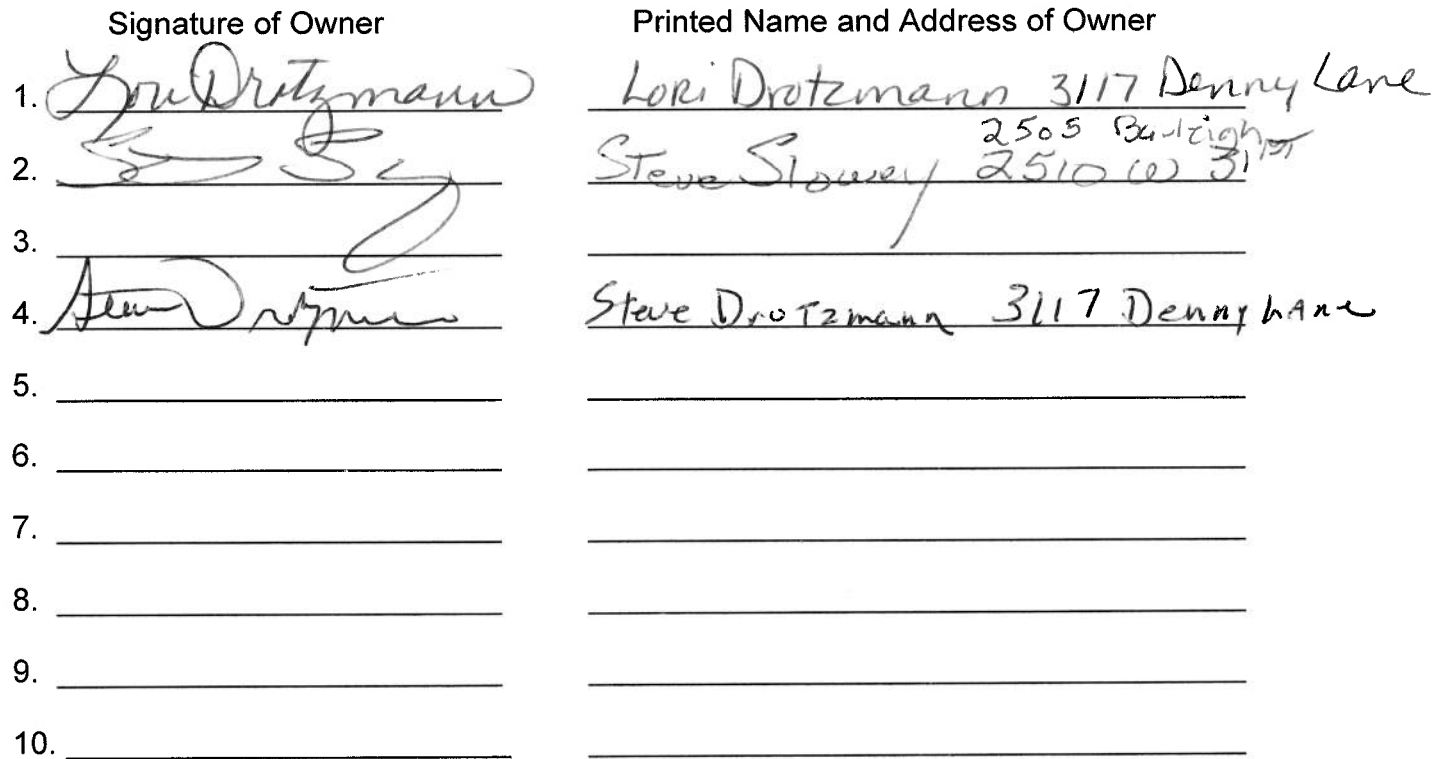 Signature of Owner Printed Name and Address of Owner
1. Lori Drotzmann Lori Drotzmann 3117 Denny Lane
2505 Burleigh
2. Steve Slowey 2510 W 31st
3.
4. Steve Drotzmann Steve Drotzmann 3117 Denny Lane
5.
6.
7.
8.
9.
10.